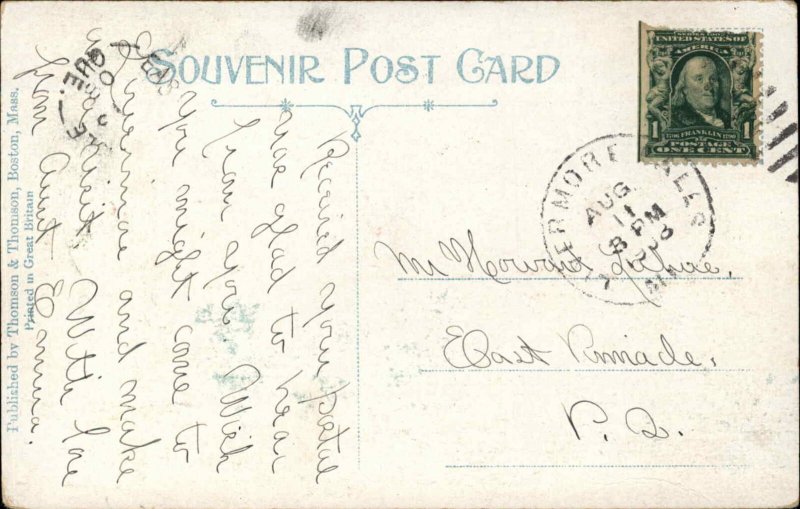 SOUVENIR POST CARD
SERIES 1902
UNITED STATES OF
AMERICA
1
FRANKLIN
1
POSTAGE
ONE CENT
LIVERMORE FALLS
AUG
11
8 PM
Mr Howard
East Pinnacle,
P. Q.
Received your postal
was glad to hear
from you. Wish
you might come to
Livermore and make
a visit
With love
from Aunt Emma.
QUE.
Published by Thomson & Thomson, Boston, Mass.
Printed in Great Britain